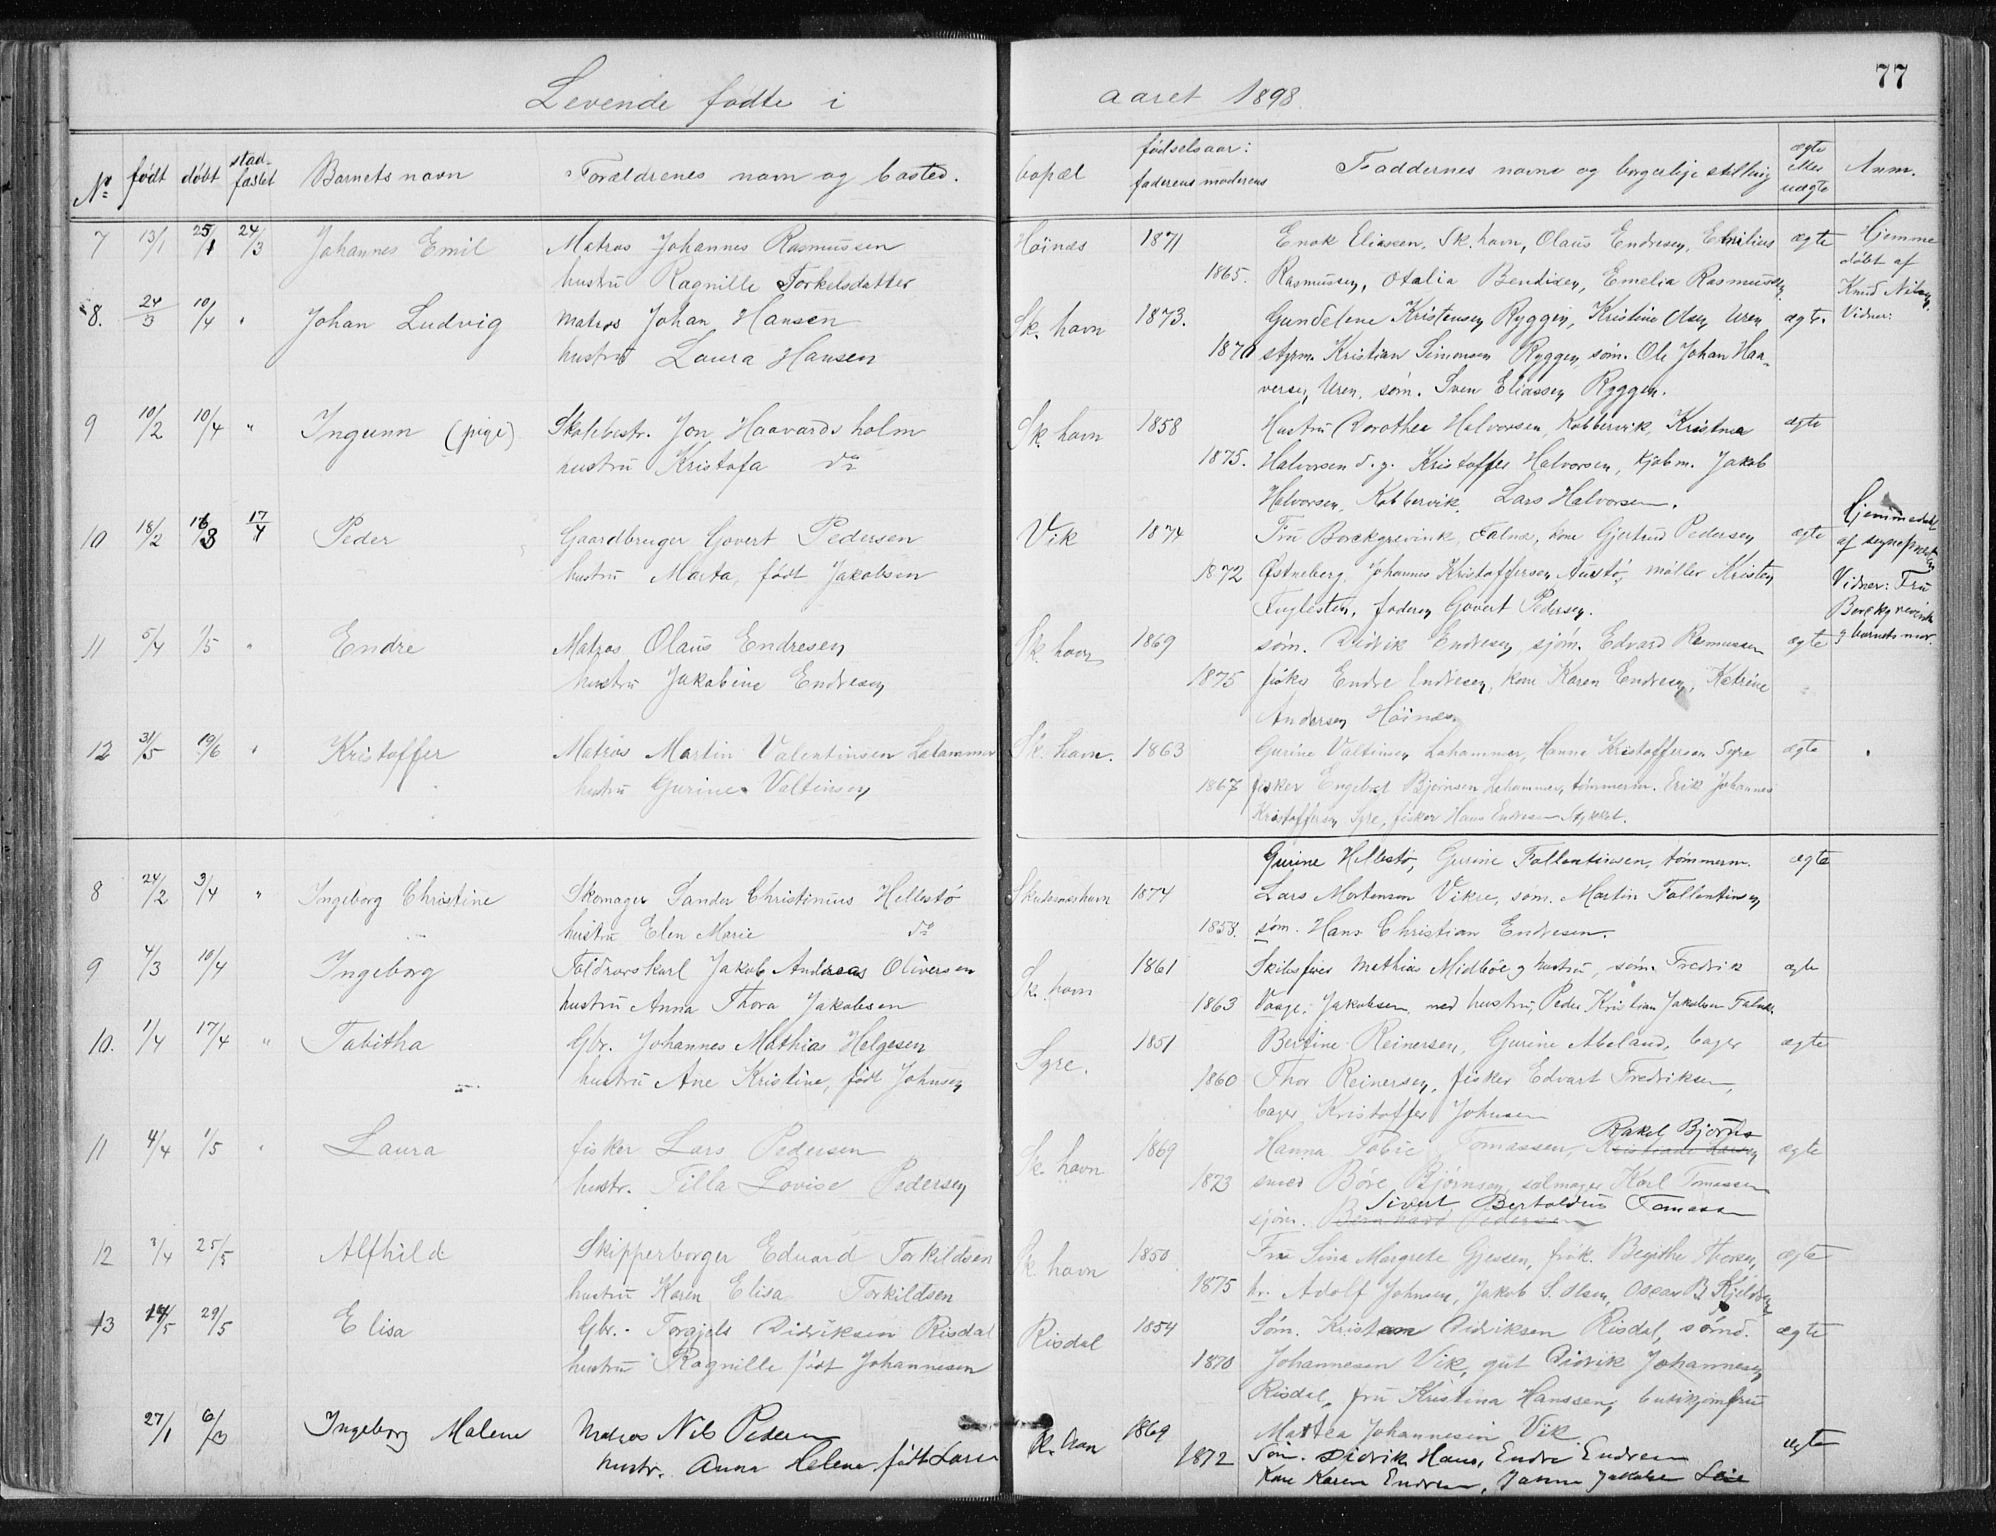 77
Levende fødte i aaret 1898.
№ født døbt stad-fæstet Barnets navn Forældrenes navn og bosted. bopæl fødselsaar: faderens moderens Faddernes navne og borgerlige stilling ægte eller uægte Anm.
7 13/1 25/1 24/3 Johannes Emil Matros Johannes Rasmussen Høinæs 1871 Enok Eliassen, Sk. havn, Olaus Endresen, Emilius ægte Hjemme
hustru Ragnille Torkelsdatter 1865. Rasmussen, Otalia Bendixen, Emelia Rasmussen. døbt af
Knud Nilsen,
8. 24/3 10/4 " Johan Ludvig Matros Johan Hansen Sk. havn 1873. Gundeline Kristensen Ryggen, Kristine Olsen Uren ægte. Vidner:
hustru Laura Hansen 1870 styrm. Kristian Simonsen Ryggen, søm. Ole Johan Haa-
versen, Uren, søm. Sven Eliassen Ryggen.
9 10/2 10/4 " Ingunn (pige) Skolebestr. Jon Haavardsholm Sk. havn 1858 Hustru Dorothea Halvorsen, Kobbervik, Kristina ægte
hustru Kristofa do 1875. Halvorsen d. y. Kristoffer Halvorsen, kjøbm. Jakob
Halvorsen, Kobbervik, Lars Halvorsen.
10 18/2 16/3 17/4 Peder Gaardbruger Govert Pedersen Vik 1874 Fru Borchgrevink, Falnæs, kone Gjertrud Pedersen ægte Hjemmedøbt
af sognepresten
hustru Marta, født Jakobsen 1872 Østneberg, Johannes Kristoffersen Aurstø, møller Kristen Vidner: Fru
Fuglesten, faderen Govert Pedersen. Borchgrevink
11 5/4 1/5 " Endre Matros Olaus Endresen Sk. havn 1869 søm. Didrik Endresen, sjøm. Edvard Rasmussen ægte g barnets mor.
hustru Jakobine Endresen 1875 fisker Endre Endresen, kone Karen Endresen, Katrine
Andersen Høinæs
12 31/5 19/6 " Kristoffer Matros Martin Valentinsen Lahammer Sk. havn. 1863 Gurine Valtinsen Lahammer, Hanna Kristoffersen Syre ægte
hustru Gurine Valtinsen 1867 fisker Engebret Bjørnsen Lahammer, tømmerm. Erik Johannes
Kristoffersen Syre, fisker Hans Endresen Stykket.
Gurine Hellestø, Gurine Fallentinsen, tømmerm. ægte
8 24/2 3/4 " Ingeborg Christine Skomager Sander Christinius Hellestø Skudesneshavn 1874 Lars Mortensen Vikre, søm. Martin Fallentinsen
hustru Elen Marie do 1858. søm. Hans Christian Endresen.
9 4/3 10/4 Ingeborg Jakob Andreas Oliversen Sk. havn 1861 Skibsfører Mathias Midbøe g hustru, søm. Fredrik ægte
hustru Anna Thora Jakobsen 1863 Vaage, Jakobsen med hustru, Peder Kristian Jakobsen Falnæs.
10. 1/4 17/4 " Tabitha Gbr. Johannes Mathias Helgesen Syre. 1851 Bertine Reinersen, Gurine Abeland, bager ægte
hustru Ane Kristine, født Johnsen 1860 Thor Reinersen, fisker Edvart Fredriksen,
bager Kristoffer Johnsen
11 4/4 1/5 " Laura fisker Lars Pedersen Sk. havn 1869 Hanna Tobie Tomassen, Rakel Bjørns ægte
hustr. Tilla Lovise Pedersen 1873 smed Børe Bjørnsen, salmager Karl Tomassen
sjøm. Bernhard Pedersen Sivert Bertoldius Tomass
12 3/4 25/5 Alfhild Skipperborger Eduard Torkildsen Sk. havn 1850 Fru Sina Margrete Gjessen, frøk. Begitha Thorsen, ægte
hustru Karen Elisa Torkildsen 1875 hr. Adolf Johnsen, Jakob S. Olsen, Oscar B. Kjeldsen
13 14/5 29/5 Elisa Gbr. Torgjels Didriksen Risdal Risdal 1854 Søm. Kristian Didriksen Risdal, ægte
hustru Ragnille født Johannesen 1870 Johannesen Vik, gut Didrik Johannesen
Risdal, fru Kristina Hanssen, butikjomfru
Martea Johannesen Vik
27/1 6/3 Ingeborg Malene Matros Nils Pedersen Sk. havn 1869
hustr. Anna Helene født Larsen 1872 Søm. Didrik Hans, Endre Endresen ægte
Kone Karen Endresen, Janna Jakobsen